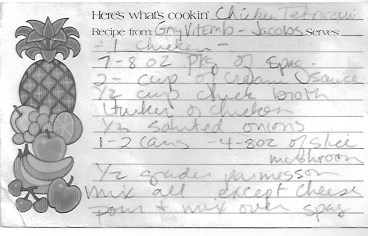 Here's what's cookin' Chicken Tetrazini
Recipe from: Gay Vitemb - Jacobs Serves
#1 chicken -
7-8 oz pkg of spag.
2- cup of cream sauce
1/2 cup chick broth
1 turkey or chicken
1/2 sauted onions
1-2 cans -4-8oz of slice
mushroom
1/2 grated parmesson
mix all except cheese
pour & mix over spag